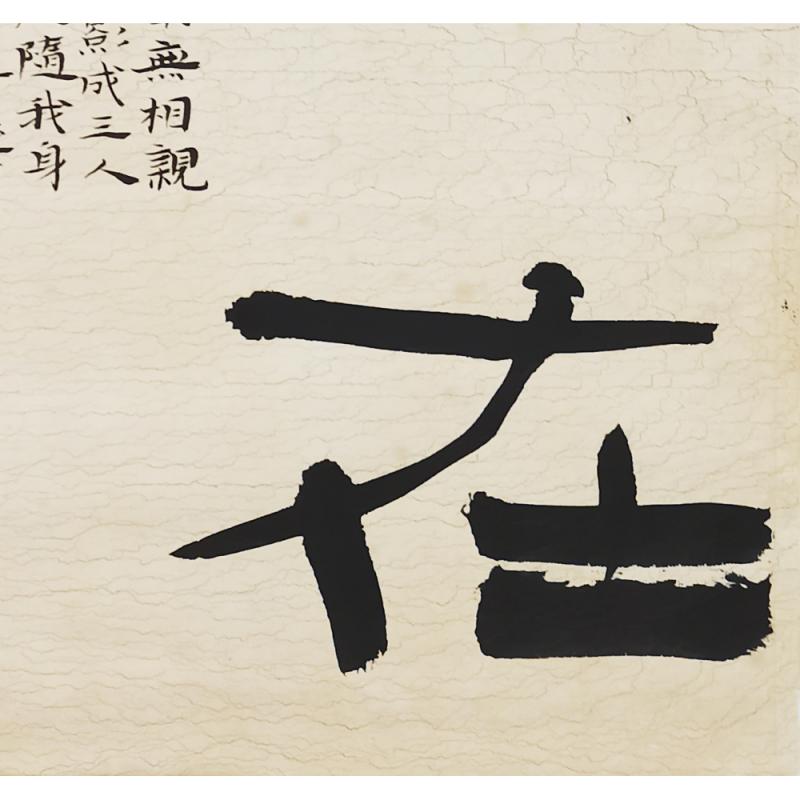 在
無相親
影成三人
隨我身